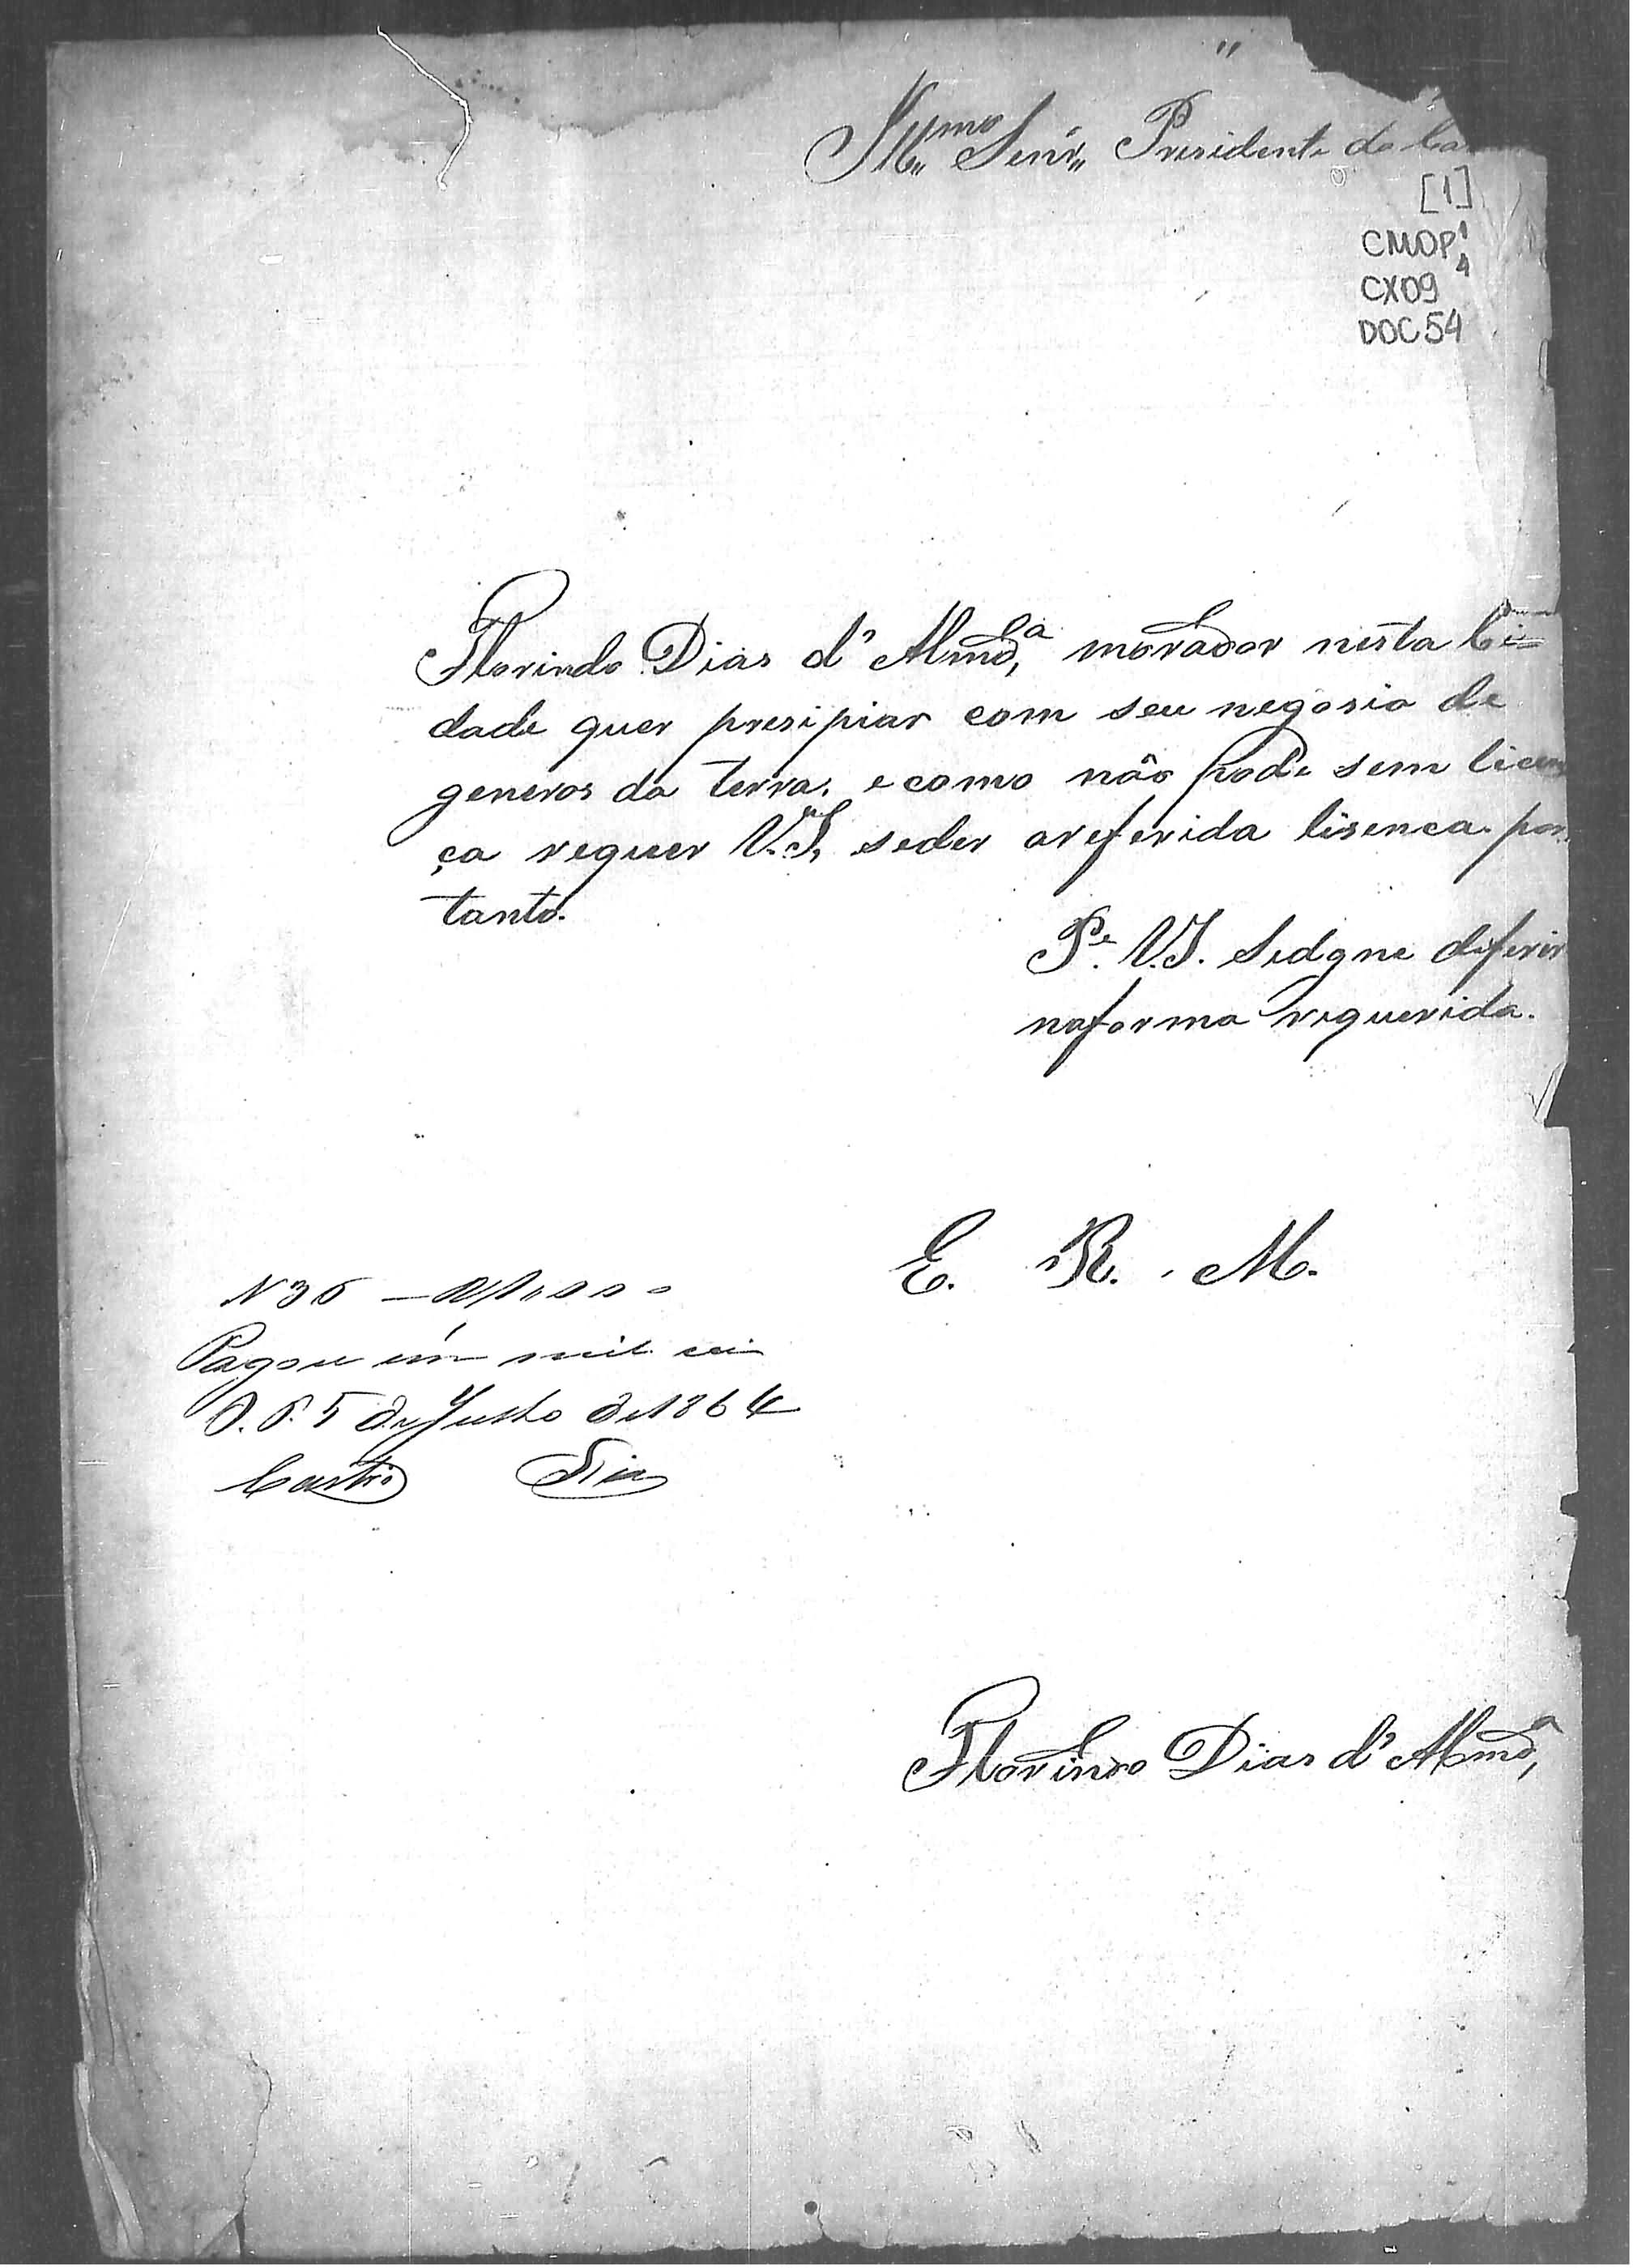 Ill.mo Senr. Presidente da Ca
[1]
CMOP
CX09
DOC54
Florindo Dias d'Almd.a morador nesta Ci=
dade quer presipiar com seu negosio de
generos da terra, e como não pode sem licen
ça requer V.S. seder areferida lisenca. por
tanto.
Pe. V.S. Sedgne diferir
naforma requerida.
E. R. M.
N 36
Pagou um mil rei
O. P. 5 de Julho de 1864
Castro Dias
Florindo Dias d'Almd.a